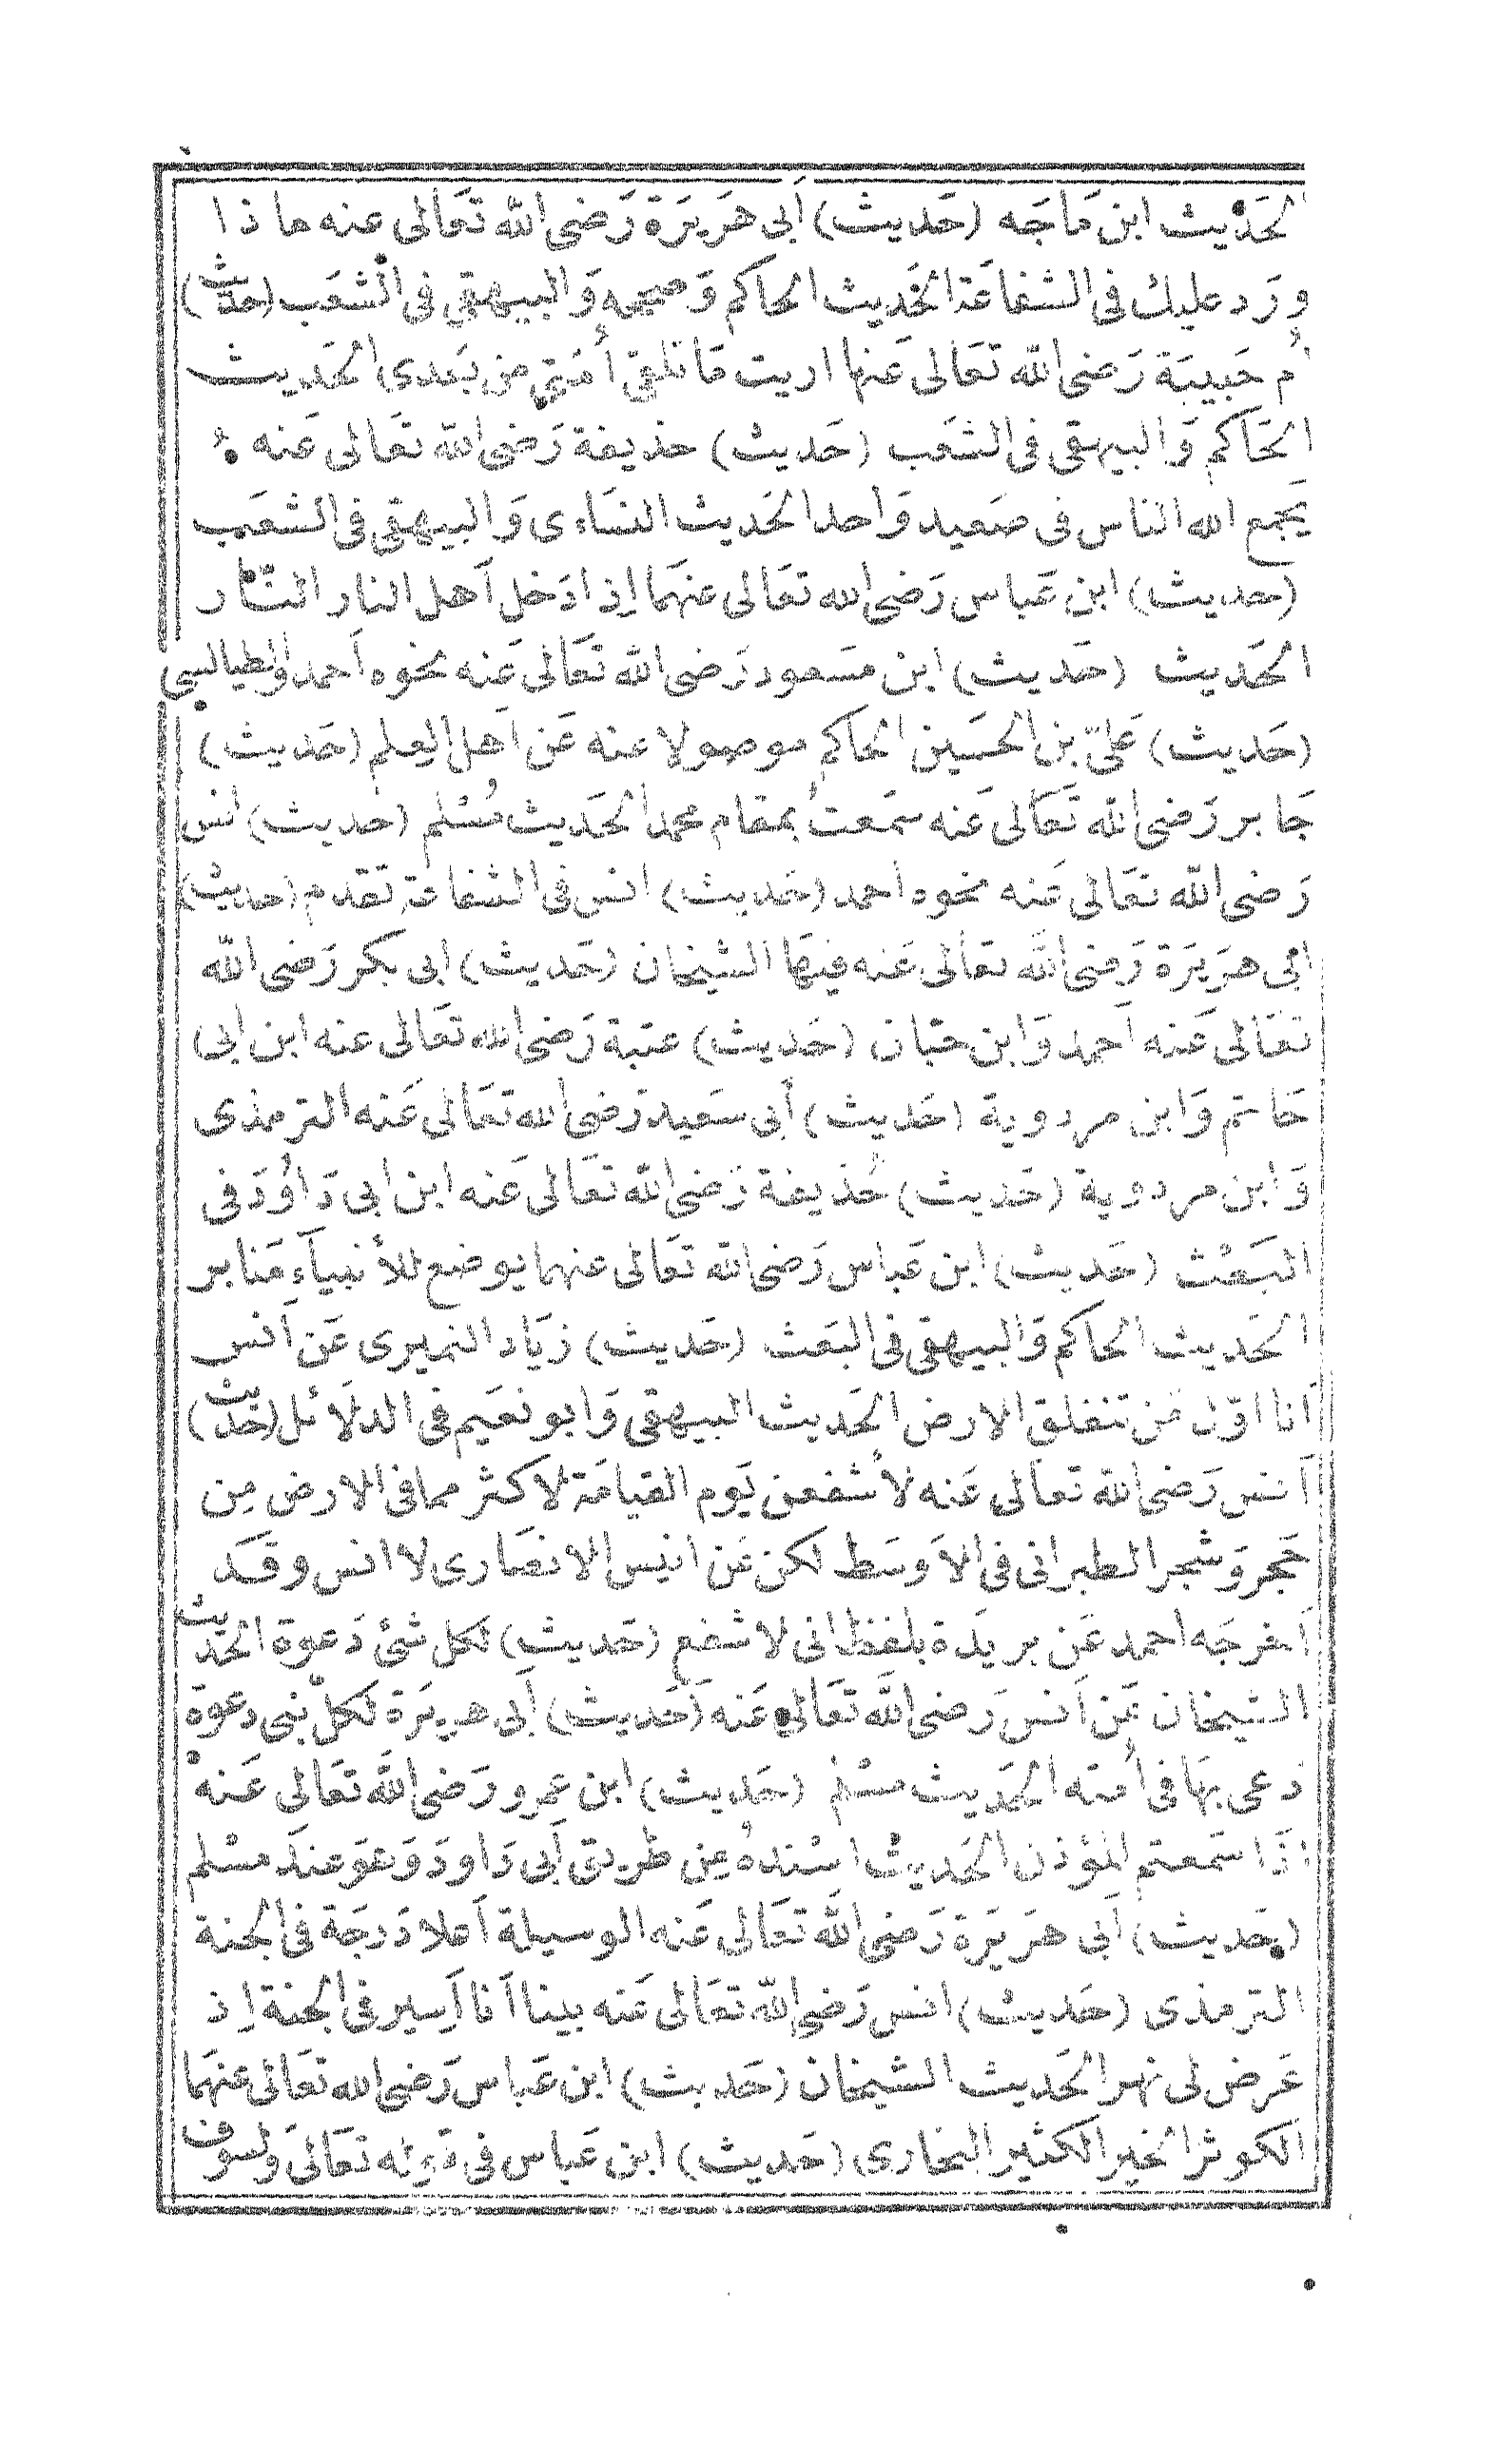 الحَديث ابن مَاجَه (حَديث) أبى هَريرَة رَضى الله تعَالى عنه ماذا
ورَد عليك فى الشفاعَة الحَديث الحاكم وَصححه وَالبيهقى فى الشعَب (حديث)
أم حَبيبَة رَضى الله تعَالى عَنها اريت مَا تلقى أمَتى من بَعدى الحَديث
الحَاكم وَالبيهقى فى الشعَب (حَديث) حذيفة رَضى الله تعَالى عَنه
يَجمع الله الناس فى صَعيد وَاحد الحَديث النسَاءى وَالبيهقى فى الشعَب
(حَديث) ابن عَباس رَضى الله تعَالى عنهَما إذا دَخل أهل النار النَار
الحَديث (حَديث) ابن مسَعود رَضى الله تعَالى عَنه نحوه أحمد والطيالسى
(حَديث) عَلىّ بن الحسَين الحاكم موصولا عنه عَن أهل العِلم (حَديث)
جَابر رَضى الله تعَالى عَنه سمَعت بمقام محمد الحَديث مُسْلم (حديث) انس
رَضى الله تعَالى عَنه نحوه أحمد (حَديث) انس فى الشفاعة تقدم (حديث)
ابى هرَيرَة رَضى الله تعَالى عَنه فيهَا الشيخان (حَديث) ابى بكر رَضى الله
تعَالى عَنه أحمد وَابن حبّان (حَديث) عتبة رَضى الله تعَالى عنه ابن ابى
حَاتم وَابن مردوية (حَديث) أبى سعَيد رَضى الله تعَالى عَنه الترمذى
وَابن مردوية (حَديث) حُذيفة رَضى الله تعَالى عَنه ابن ابى دَاوُدَ فى
البَعْث (حَديث) ابن عَباس رَضى الله تعَالى عنهما يوضع للأنبيآء مَنابر
الحَديث الحاكم وَالبيهقى فى البَعث (حَديث) زيَاد النميرى عَن أنس
أنا اوّل مَن تنفلق الارض الحَديث البيهقى وَابو نعَيم فى الدلَائل (حَديث)
أنس رَضى الله تعالى عَنه لأشفعن يَوم القيامَة لاكثر مما فى الارض مِن
حَجر وَشجر الطبرانى فى الاَوسَط لكن عَن انيس الانصَارى لا انس وقَد
أخرجَه احمد عَن بريدَة بلفظ انى لاشفع (حَديث) لكل شئ دَعوة الحَديث
الشيخان عَن أنس رَضى الله تعَالى عَنه (حَديث) أبى هريرَة لكلّ نبى دعوَة
دعى بهَا فى أمته الحَديث مسْلم (حَديث) ابن عَمرو رَضى الله تعَالى عَنه
إذَا سمَعتم المؤذن الحَديث اسْندهُ عِن طريق أبى دَاود وَعوَ عندَ مسْلم
(حَديث) أبى هرَيرَة رَضى الله تعَالى عَنه الوسيلة أعلا دَرجَة فى الجنة
الترمذى (حَديث) انس رَضى الله تعَالى عَنه بينا أنا أسير فى الجنة إذ
عَرض لى نهر الحَديث الشيخان (حَديث) ابن عَباس رَضى الله تعَالى عنهَما
الكوثر الخير الكثير البخارى (حَديث) ابن عَباس فى قَوله تعَالى وَلسوف